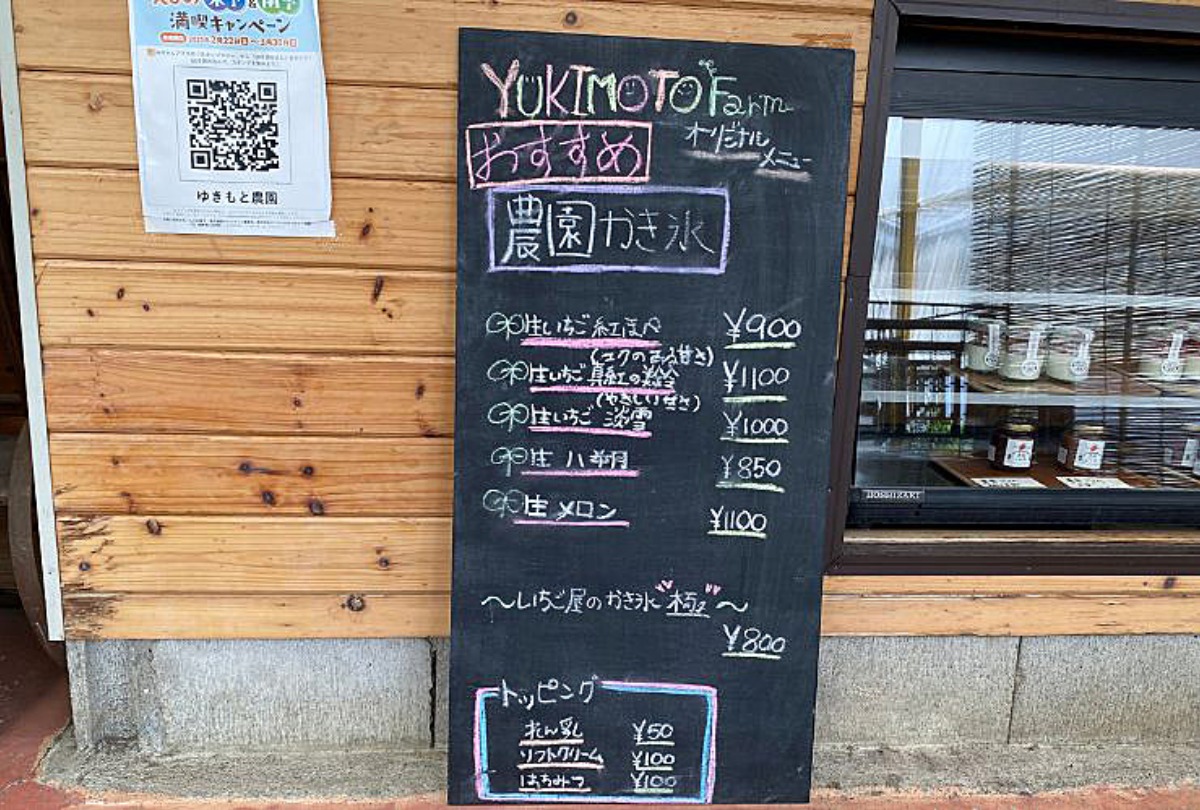 満喫キャンペーン
ゆきもと農園
YUKIMOTO Farm
オリジナル
メニュー
おすすめ
農園かき氷
生いちご 紅ほっぺ ¥900
(コクのある甘さ)
生いちご 真紅の美鈴 ¥1100
(やさしい甘さ)
生いちご 淡雪 ¥1000
生 八朔 ¥850
生 メロン ¥1100
～いちご屋のかき氷"極"～
¥800
トッピング
れん乳 ¥50
ソフトクリーム ¥100
はちみつ ¥100
HOSHIZAKI